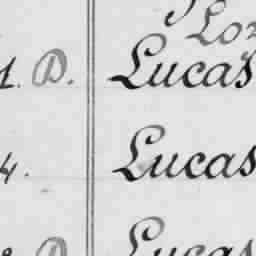 1. D. Lucas
4. Lucas
D Lucas